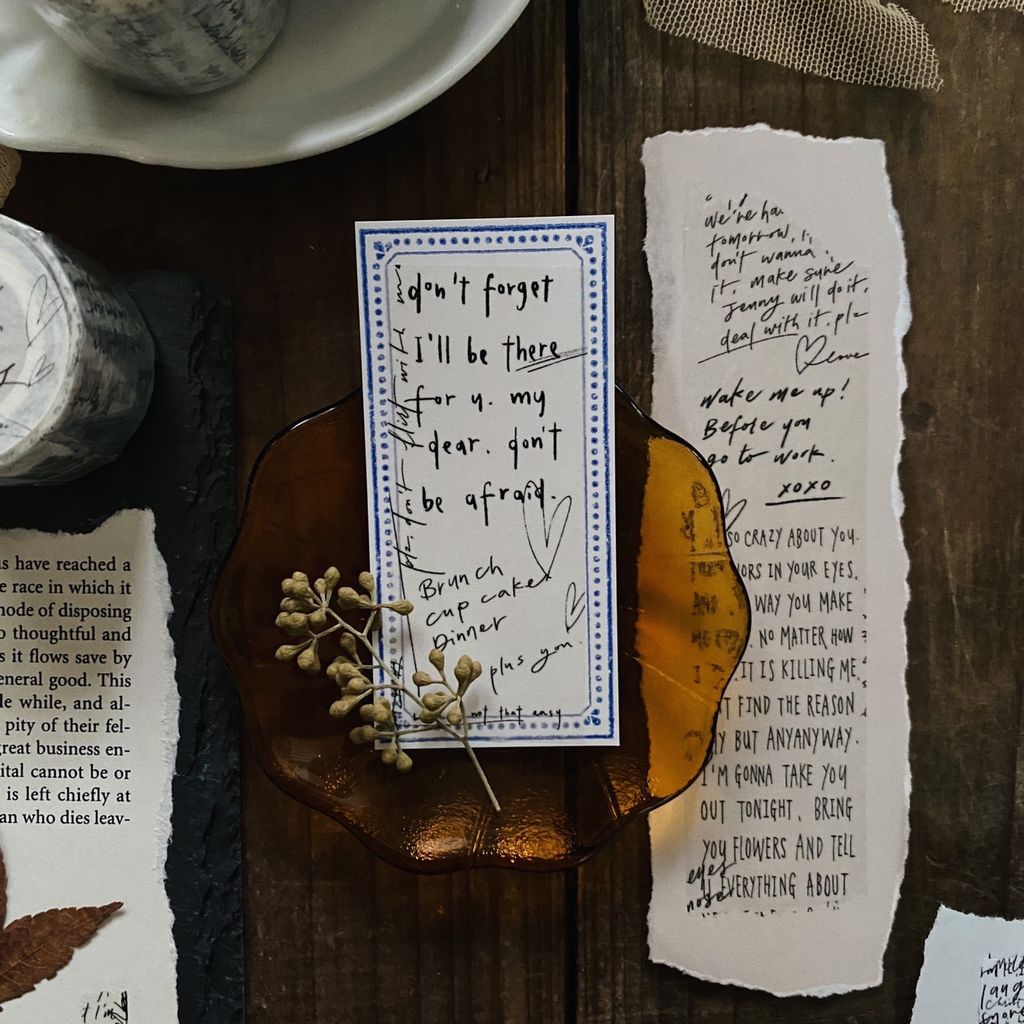 don't forget
I'll be there
for u. my
dear. don't
be afraid.
Brunch
cup cake
Dinner
plus you.
not that easy
plz don't flirt with me
"We're ha
tomorrow, I
don't wanna
it, make sure
Jenny will do it,
deal with it. plz
Wake me up!
Before you
go to work.
xoxo
SO CRAZY ABOUT YOU.
ORS IN YOUR EYES.
WAY YOU MAKE
NO MATTER HOW
IT IS KILLING ME,
T FIND THE REASON
Y BUT ANYANYWAY.
I'M GONNA TAKE YOU
OUT TONIGHT, BRING
YOU FLOWERS AND TELL
U EVERYTHING ABOUT
eyes
nose
s have reached a
e race in which it
node of disposing
o thoughtful and
s it flows save by
eneral good. This
le while, and al-
pity of their fel-
great business en-
ital cannot be or
is left chiefly at
an who dies leav-